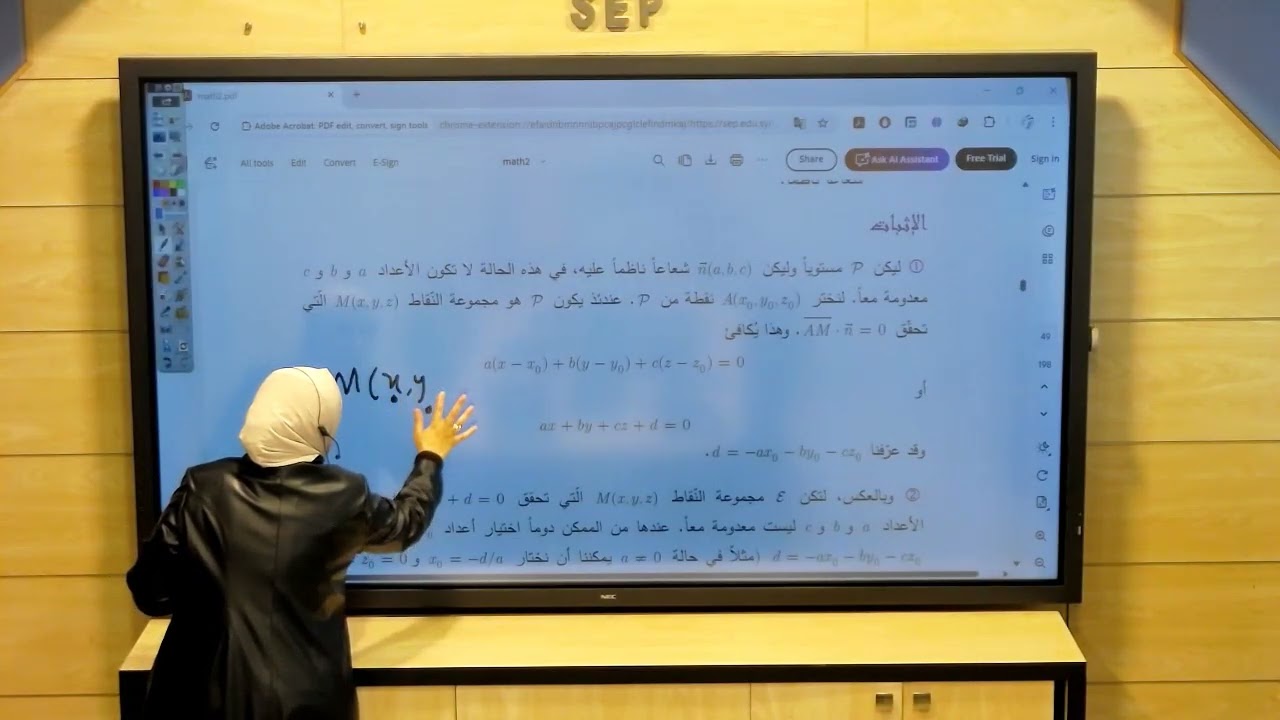 SEP
math2.pdf
Adobe Acrobat: PDF edit, convert, sign tools
All tools Edit Convert E-Sign math2 Share Ask AI Assistant Free Trial Sign in
الإثبات
① ليكن P مستوياً وليكن n⃗(a,b,c) شعاعاً ناظماً عليه، في هذه الحالة لا تكون الأعداد a و b و c
معدومة معاً. لنختر A(x₀,y₀,z₀) نقطة من P. عندئذ يكون P هو مجموعة النّقاط M(x,y,z) الّتي
تحقّق AM⃗ · n⃗ = 0. وهذا يُكافئ
a(x − x₀) + b(y − y₀) + c(z − z₀) = 0
M(x,y
أو
ax + by + cz + d = 0
وقد عرّفنا d = −ax₀ − by₀ − cz₀.
② وبالعكس، لتكن ℰ مجموعة النّقاط M(x,y,z) الّتي تحقق + d = 0
الأعداد a و b و c ليست معدومة معاً. عندها من الممكن دوماً اختيار أعداد
d = −ax₀ − by₀ − cz₀ (مثلاً في حالة a ≠ 0 يمكننا أن نختار x₀ = −d/a و z₀ = 0
49
198
NEC